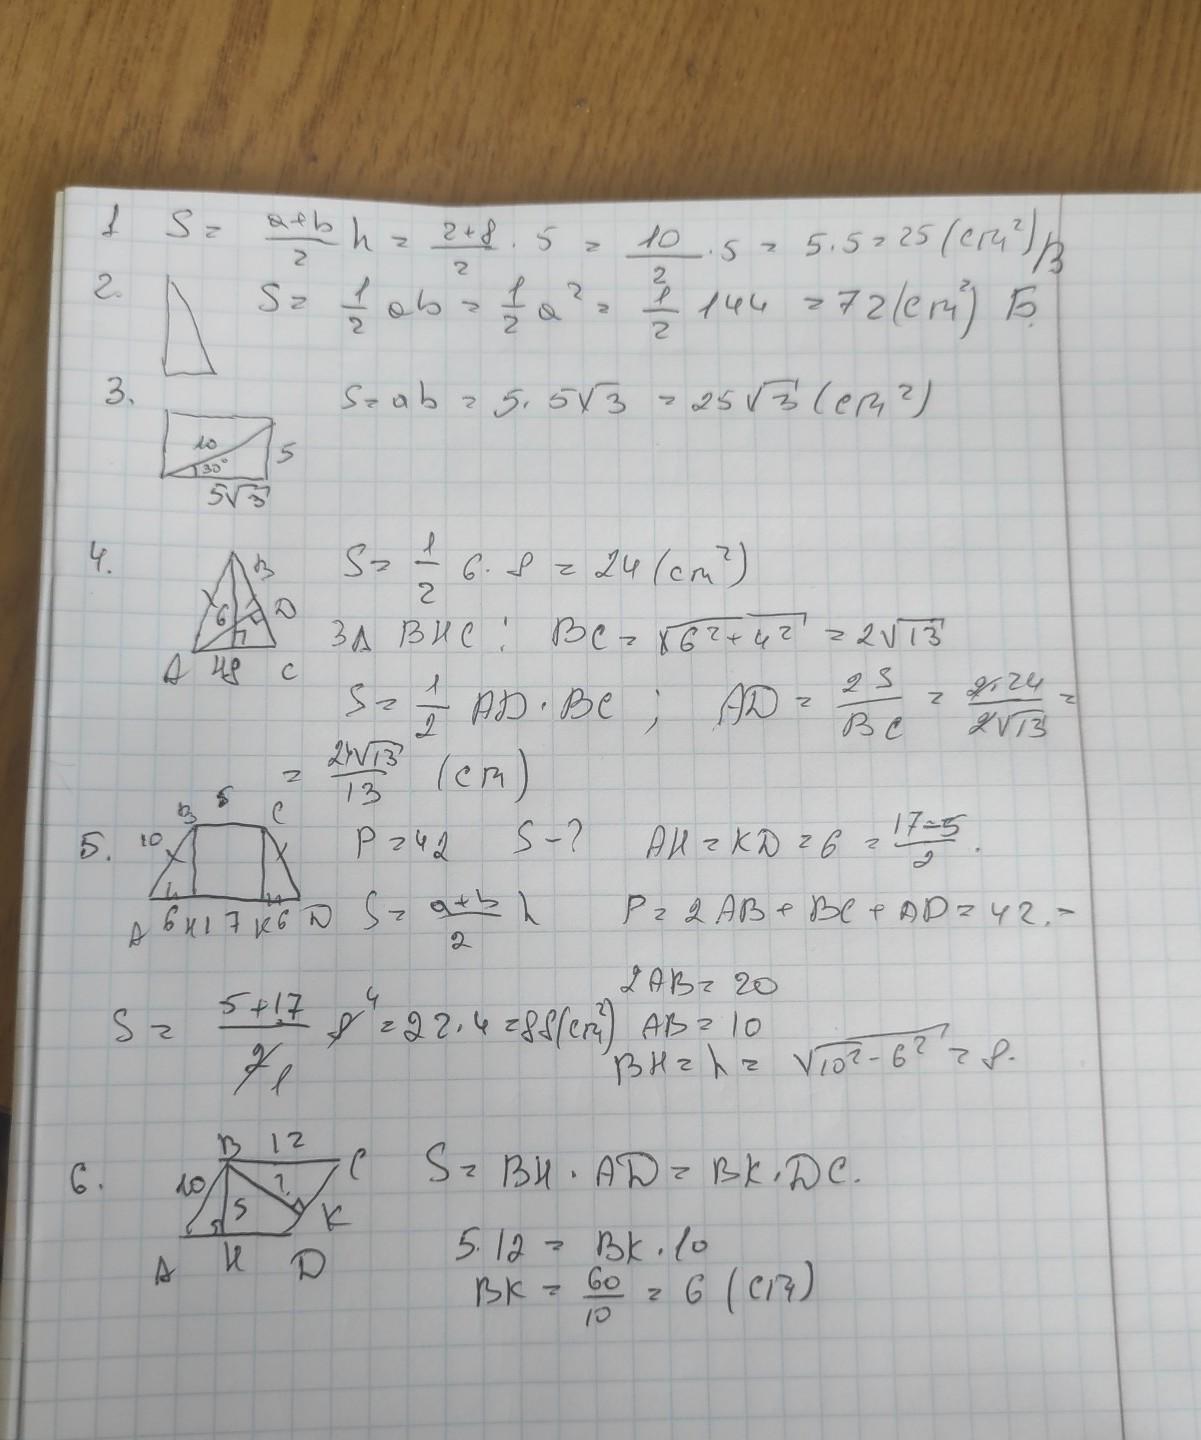 1 S = (a+b)/2 h = (2+8)/2 · 5 = 10/2 · 5 = 5·5 = 25 (см²) В
2. S = 1/2 ab = 1/2 a² = 1/2 144 = 72 (см²) Б.
3. S = ab = 5·5√3 = 25√3 (см²)
10 30° 5
5√3
4. S = 1/2 6·8 = 24 (см²)
B 6 D
A 48 C
З Δ BHC: BC = √(6²+4²) = 2√13
S = 1/2 AD·BC; AD = 2S/BC = 2·24/2√13 =
= 24√13/13 (см)
5. P = 42 S-? AH = KD = 6 = (17-5)/2.
B 5 C
10
A 6 H 17 K 6 D
S = (a+b)/2 h P = 2AB + BC + AD = 42.-
2AB = 20
S = (5+17)/2 1 8 4 = 22·4 = 88 (см²) AB = 10
BH = h = √(10²-6²) = 8.
6. S = BH·AD = BK·DC.
B 12 C
10 5 ? K
A H D
5·12 = BK·10
BK = 60/10 = 6 (см)